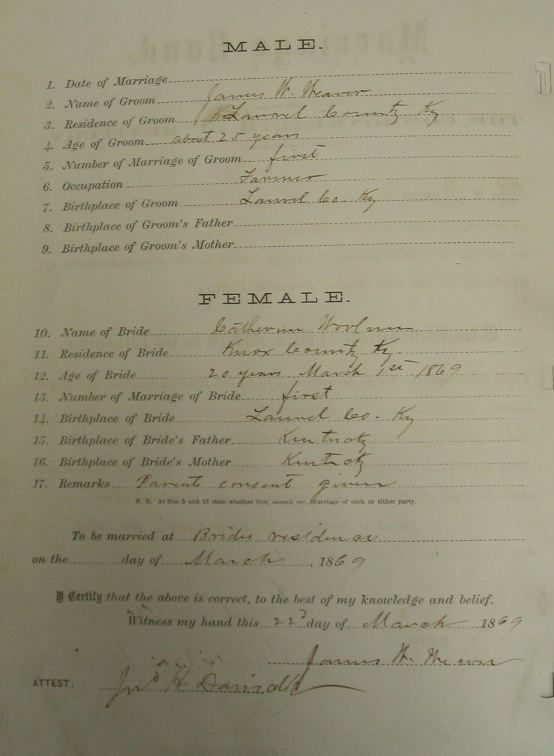 MALE.
1. Date of Marriage
2. Name of Groom James W. Weaver
3. Residence of Groom Laurel County Ky
4. Age of Groom about 25 years
5. Number of Marriage of Groom first
6. Occupation Farmer
7. Birthplace of Groom Laurel Co. Ky
8. Birthplace of Groom's Father
9. Birthplace of Groom's Mother
FEMALE.
10. Name of Bride Catherine
11. Residence of Bride Knox County Ky.
12. Age of Bride 20 years March 1st 1869
13. Number of Marriage of Bride first
14. Birthplace of Bride Laurel Co - Ky
15. Birthplace of Bride's Father Kentucky
16. Birthplace of Bride's Mother Kentucky
17. Remarks Parents consent given
N. B. At Nos. 5 and 13 state whether first, second, etc., Marriage of each or either party.
To be married at Brides residence
on the day of March, 1869
I Certify that the above is correct, to the best of my knowledge and belief.
Witness my hand this 22d day of March 1869
James W. Weaver
ATTEST: Jno H